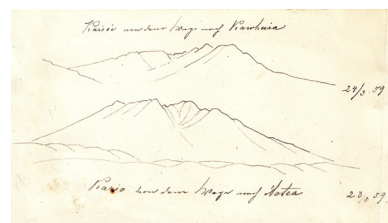 Karioi von dem Wege nach Kawhia
24/3 59
Kario von dem Wege nach Aotea
23/3 59